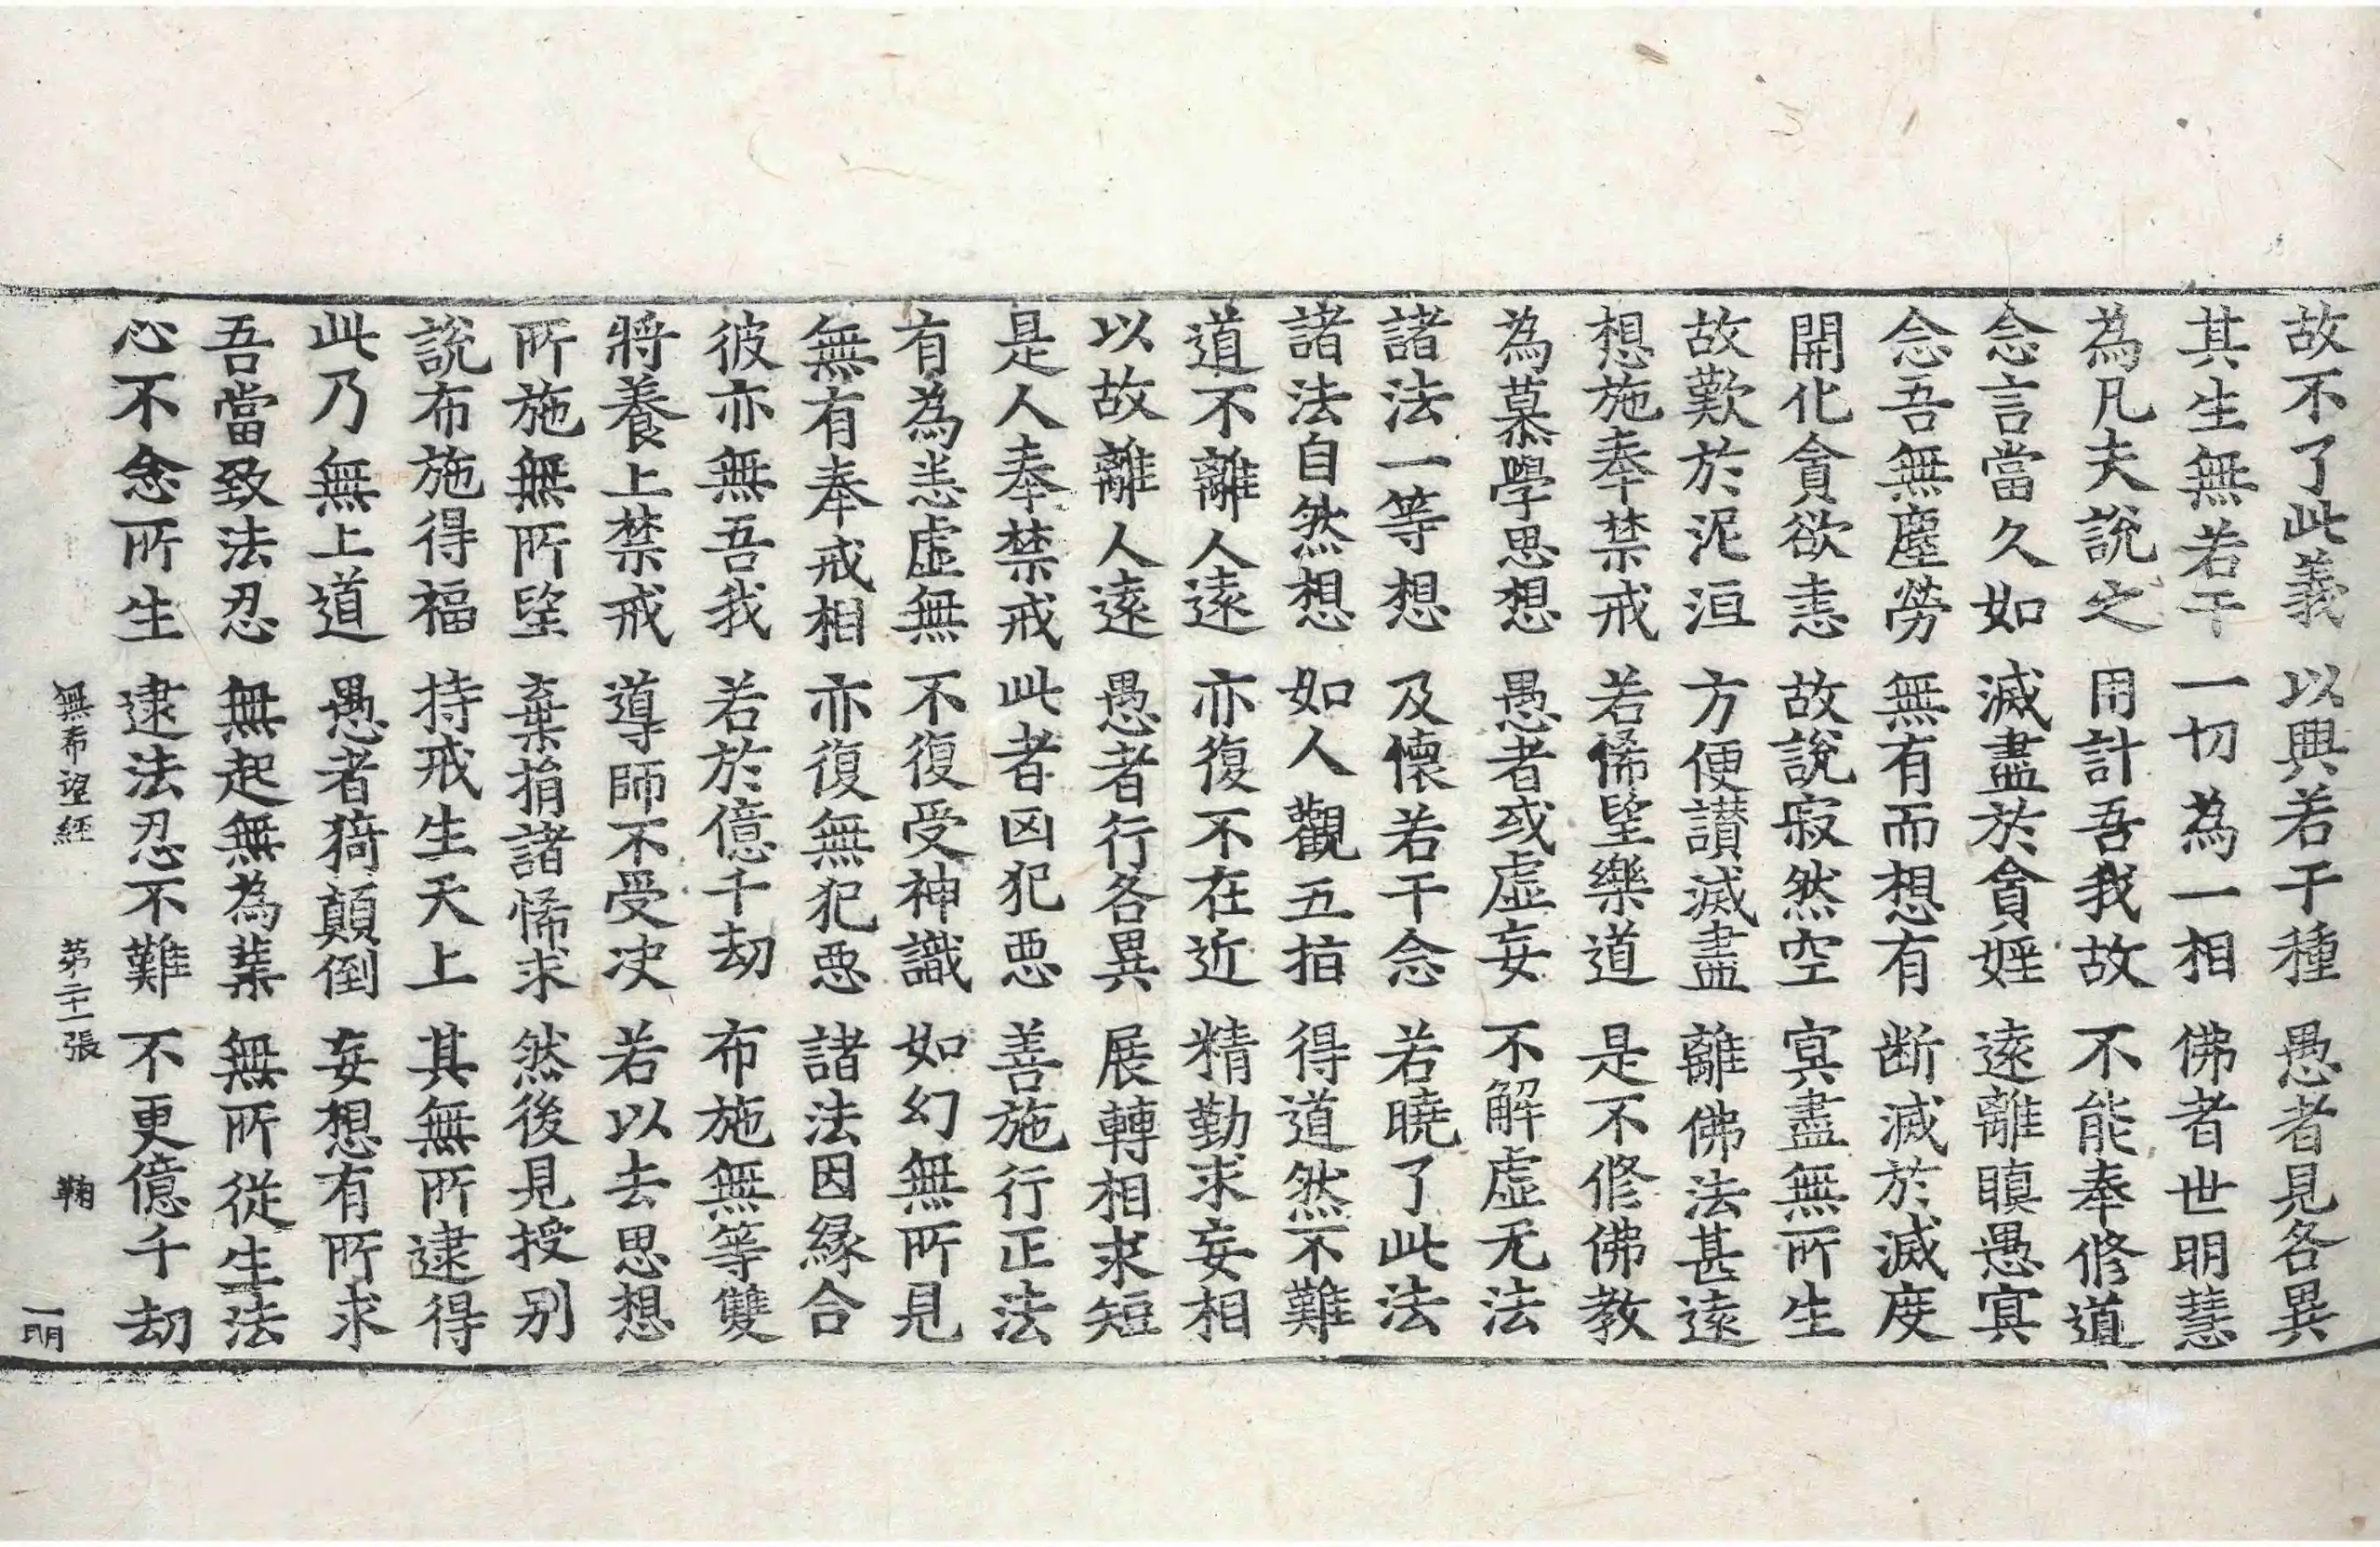 故不了此義　以興若干種　愚者見各異
其生無若干　一切為一相　佛者世明慧
為凡夫說之　用計吾我故　不能奉修道
念言當久如　滅盡於貪婬　遠離瞋愚冥
念吾無塵勞　無有而想有　断滅於滅度
開化貪欲恚　故說寂然空　冥盡無所生
故歎於泥洹　方便讃滅盡　離佛法甚遠
想施奉禁戒　若悕望樂道　是不修佛教
為慕學思想　愚者或虛妄　不解虛无法
諸法一等想　及懷若干念　若曉了此法
諸法自然想　如人觀五指　得道然不難
道不離人遠　亦復不在近　精勤求妄相
以故離人遠　愚者行各異　展轉相求短
是人奉禁戒　此者凶犯惡　善施行正法
有為恙虛無　不復受神識　如幻無所見
無有奉戒相　亦復無犯惡　諸法因縁合
彼亦無吾我　若於億千劫　布施無等雙
將養上禁戒　導師不受决　若以去思想
所施無所望　棄捐諸悕求　然後見授别
說布施得福　持戒生天上　其無所逮得
此乃無上道　愚者猗顛倒　妄想有所求
吾當致法忍　無起無為業　無所從生法
心不念所生　逮法忍不難　不更億千劫
無希望經　第二十一張　鞠　一明